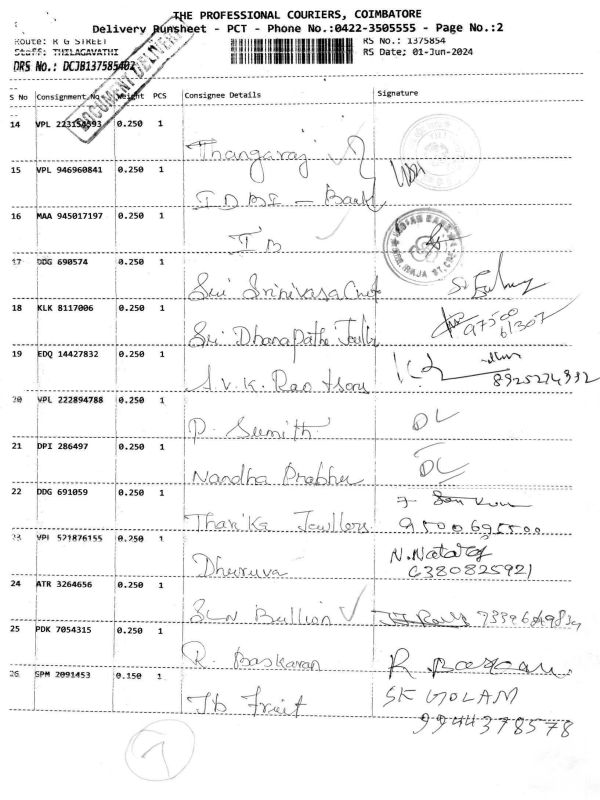 THE PROFESSIONAL COURIERS, COIMBATORE
Delivery Runsheet - PCT - Phone No.:0422-3505555 - Page No.:2
Route: R G STREET
RS No.: 1375854
Staff: THILAGAVATHI
RS Date: 01-Jun-2024
DRS No.: DCJB137585402
DOCUMENT DELIVERY
S No Consignment No Weight PCS Consignee Details Signature
14 VPL 223154593 0.250 1
Thangaraj
15 VPL 946960841 0.250 1
IDBI - Bank
16 MAA 945017197 0.250 1
IB
INDIAN BANK
17 DDG 690574 0.250 1
Sri Srinivasa
18 KLK 8117006 0.250 1
Sri Dhanapathi
97500
61307
19 EDQ 14427832 0.250 1
S.V.K. Rao & Sons
20 VPL 222894788 0.250 1
P. Sumith DL
21 DPI 286497 0.250 1
Nandha Prabhu DL
22 DDG 691059 0.250 1
Tharika Jewllers 9500695500
23 VPL 521876155 0.250 1
N. Nataraj
Dhuruva 6380825921
24 ATR 3264656 0.250 1
SLN Bullion
25 PDK 7054315 0.250 1
R. Baskaran R. Baskaran
26 SPM 2091453 0.150 1
SK GOLAM
Jb Fruit 9944378578